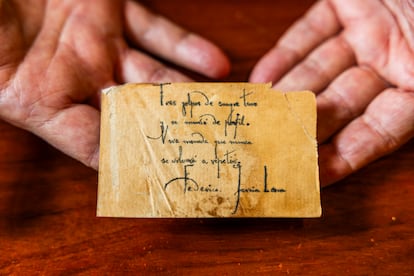 Tres golpes de sangre tuvo
y se murió de perfil.
Viva moneda que nunca
se volverá a repetir.
Federico García Lorca